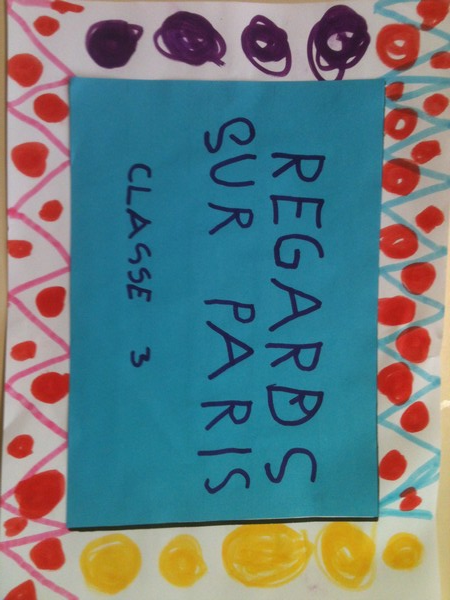 REGARDS
SUR PARIS
CLASSE 3